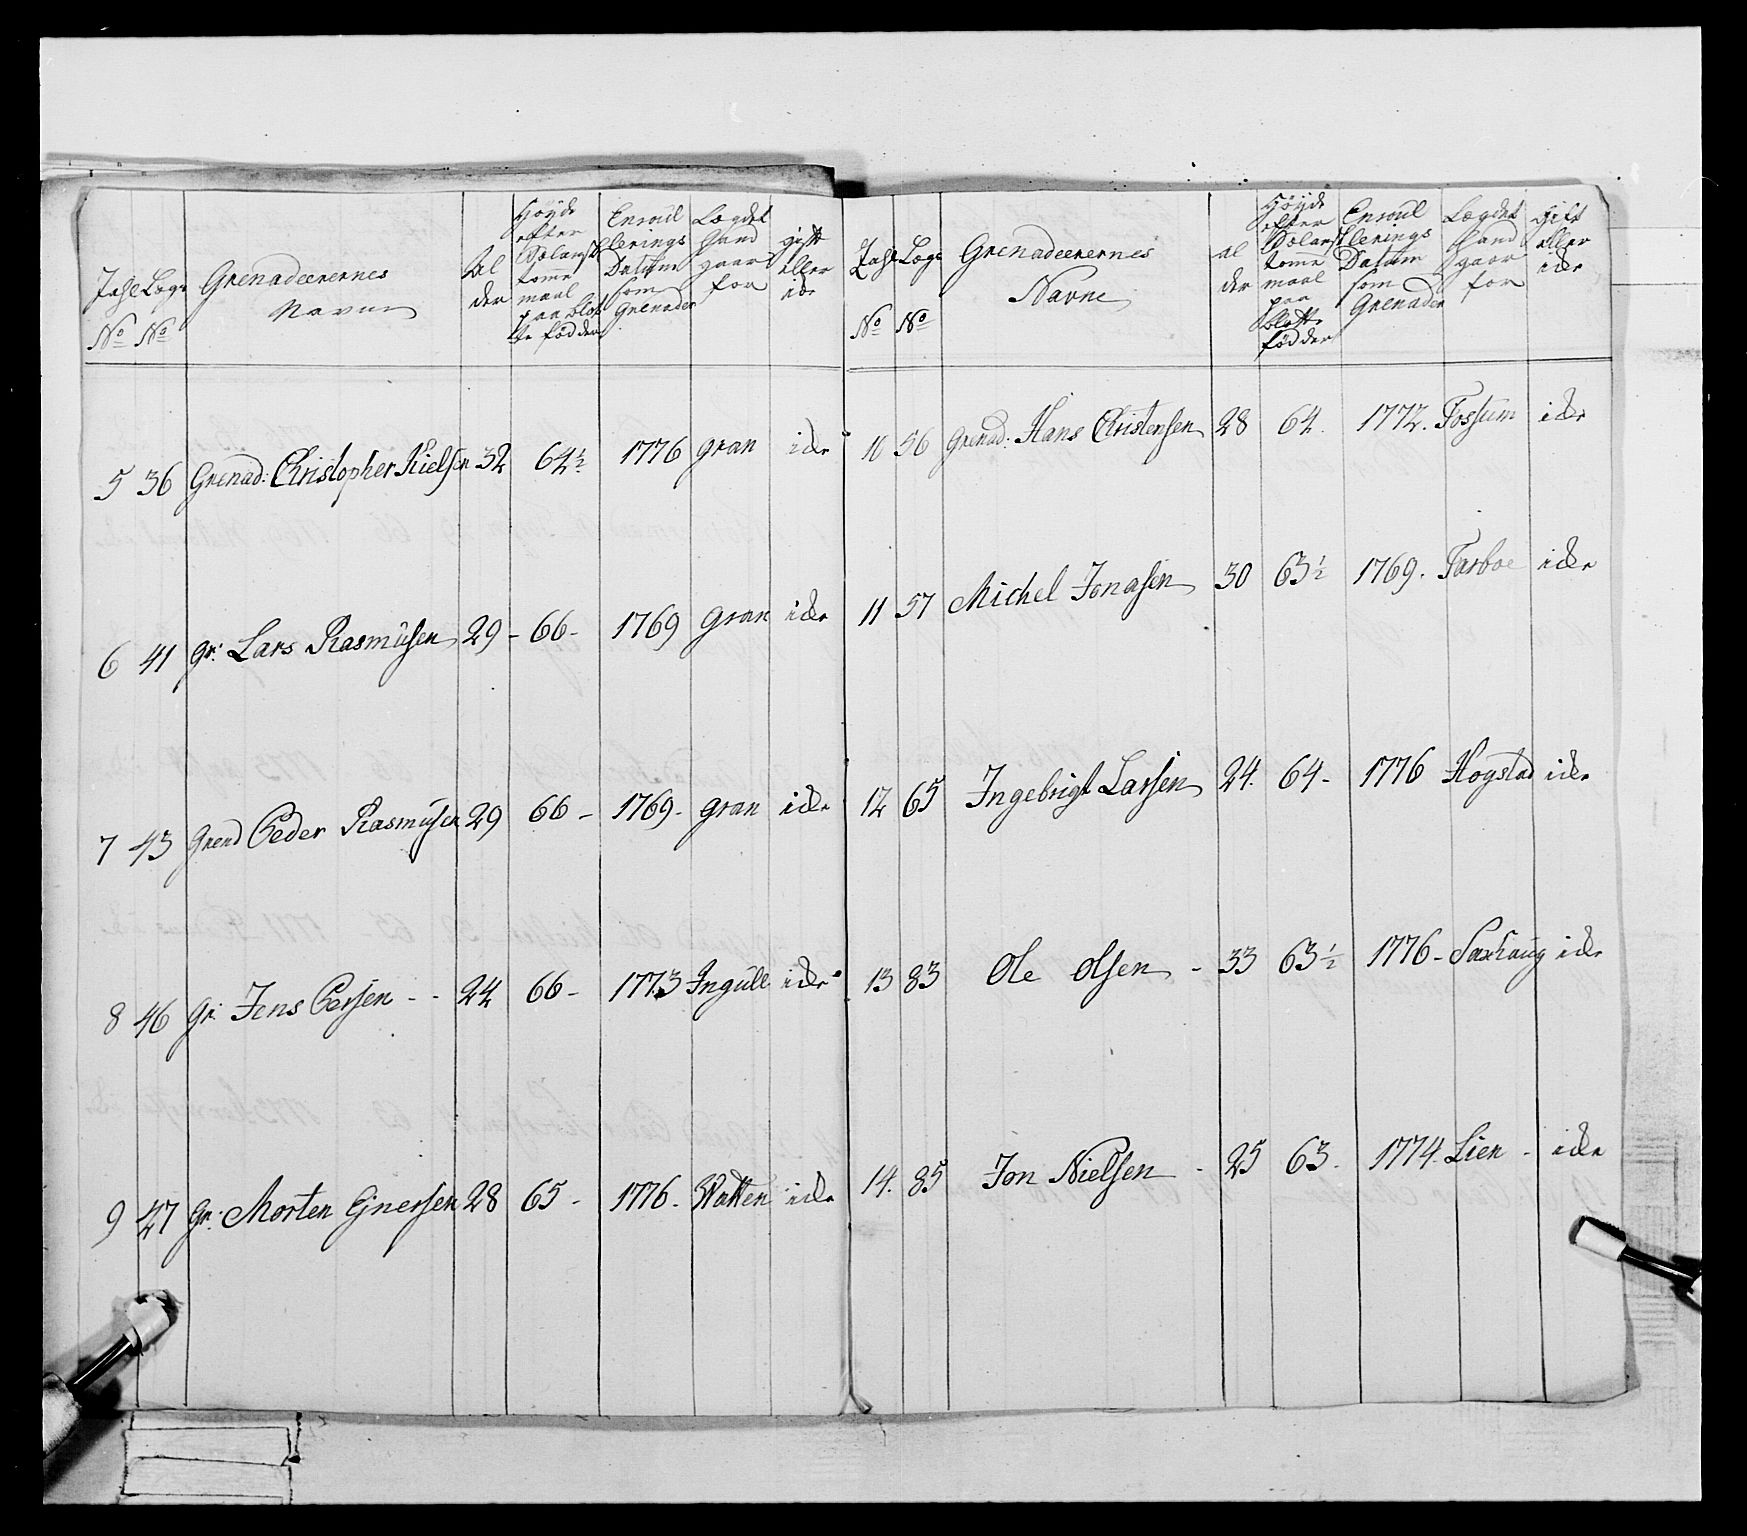 Tahl No Lægs No Grenadeerernes Navne Al der Høyde efter Solansk tomme maal paa blotte födder Enroul lerings Datum som Grenader Lægdet Hand gaar for gift eller icke
5 36 Grenad: Christopher Nielsen 32 64½ 1776 gran icke
6 41 gr: Lars Rasmusen 29 - 66 - 1769 gran icke
7 43 Grend Peder Rasmusen 29 66 - 1769 - gran icke
8 46 Gr: Jens Persen - - 24 66 - 1773 Ingull icke
9 47 Gr: Morten Ejnersen 28 65 - 1776 - Watten icke
Tahl No Lægs No Grenadeerernes Navne al der Høyde efter Solansk tomme maal paa blotte födder Enroul lerings Datum som Grenader Lægdet Hand gaar for Gift eller icke
10 56 Grenad: Hans Christensen 28 64. 1772. Fossum icke
11 57 Michel Jonasen 30 63½ 1769. Tarboe icke
12 65 Ingebrigt Larsen 24. 64 - 1776 Hogstad icke
13 83 Ole Olsen - 33 63½ 1776 - Saxhaug icke
14. 85 Jon Nielsen - 25 63. 1774. Lien - icke